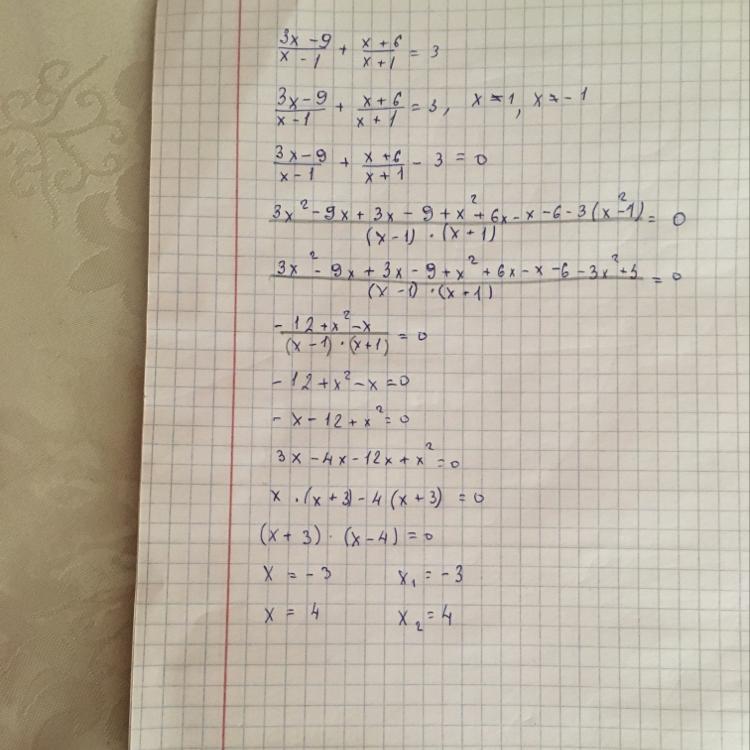 (3x - 9)/(x - 1) + (x + 6)/(x + 1) = 3
(3x - 9)/(x - 1) + (x + 6)/(x + 1) = 3, x ≠ 1, x ≠ - 1
(3x - 9)/(x - 1) + (x + 6)/(x + 1) - 3 = 0
(3x² - 9x + 3x - 9 + x² + 6x - x - 6 - 3(x² - 1))/((x - 1) · (x + 1)) = 0
(3x² - 9x + 3x - 9 + x² + 6x - x - 6 - 3x² + 3)/((x - 1) · (x + 1)) = 0
(- 12 + x² - x)/((x - 1) · (x + 1)) = 0
- 12 + x² - x = 0
- x - 12 + x² = 0
3x - 4x - 12x + x² = 0
x · (x + 3) - 4 (x + 3) = 0
(x + 3) · (x - 4) = 0
x = - 3 x₁ = - 3
x = 4 x₂ = 4